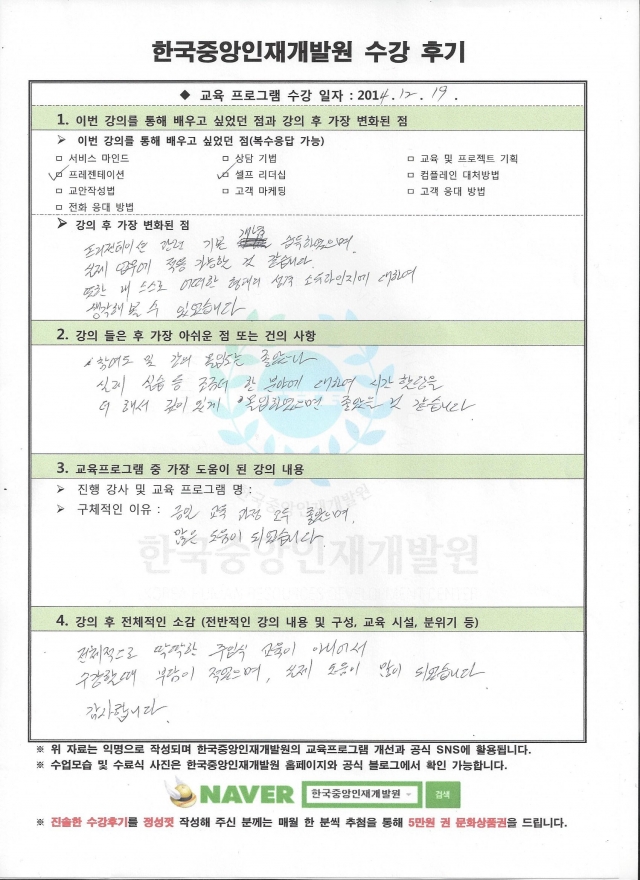 한국중앙인재개발원 수강 후기
◆ 교육 프로그램 수강 일자 : 2014. 12. 19.
1. 이번 강의를 통해 배우고 싶었던 점과 강의 후 가장 변화된 점
➢ 이번 강의를 통해 배우고 싶었던 점(복수응답 가능)
□ 서비스 마인드 □ 상담 기법 □ 교육 및 프로젝트 기획
☑ 프레젠테이션 ☑ 셀프 리더십 □ 컴플레인 대처방법
□ 교안작성법 □ 고객 마케팅 □ 고객 응대 방법
□ 전화 응대 방법
➢ 강의 후 가장 변화된 점
프리젠테이션 관련 기본 개념 습득하였으며,
실제 업무에 적용 가능할 것 같습니다.
또한 내 스스로 어떠한 형태의 성격 소유자인지에 대하여
생각해 볼 수 있었습니다.
2. 강의 들은 후 가장 아쉬운 점 또는 건의 사항
참여도 및 강의 몰입도는 좋았으나
실제 실습 등 조금더 한 분야에 대하여 시간 할당을
더 해서 깊이 있게 몰입하였으면 좋았을 것 같습니다.
3. 교육프로그램 중 가장 도움이 된 강의 내용
➢ 진행 강사 및 교육 프로그램 명 :
➢ 구체적인 이유 : 금일 교육 과정 모두 좋았으며,
많은 도움이 되었습니다.
한국중앙인재개발원
4. 강의 후 전체적인 소감 (전반적인 강의 내용 및 구성, 교육 시설, 분위기 등)
전체적으로 딱딱한 주입식 교육이 아니어서
수강할때 부담이 적었으며, 실제 도움이 많이 되었습니다.
감사합니다.
※ 위 자료는 익명으로 작성되며 한국중앙인재개발원의 교육프로그램 개선과 공식 SNS에 활용됩니다.
※ 수업모습 및 수료식 사진은 한국중앙인재개발원 홈페이지와 공식 블로그에서 확인 가능합니다.
NAVER 한국중앙인재개발원 검색
※ 진솔한 수강후기를 정성껏 작성해 주신 분께는 매월 한 분씩 추첨을 통해 5만원 권 문화상품권을 드립니다.